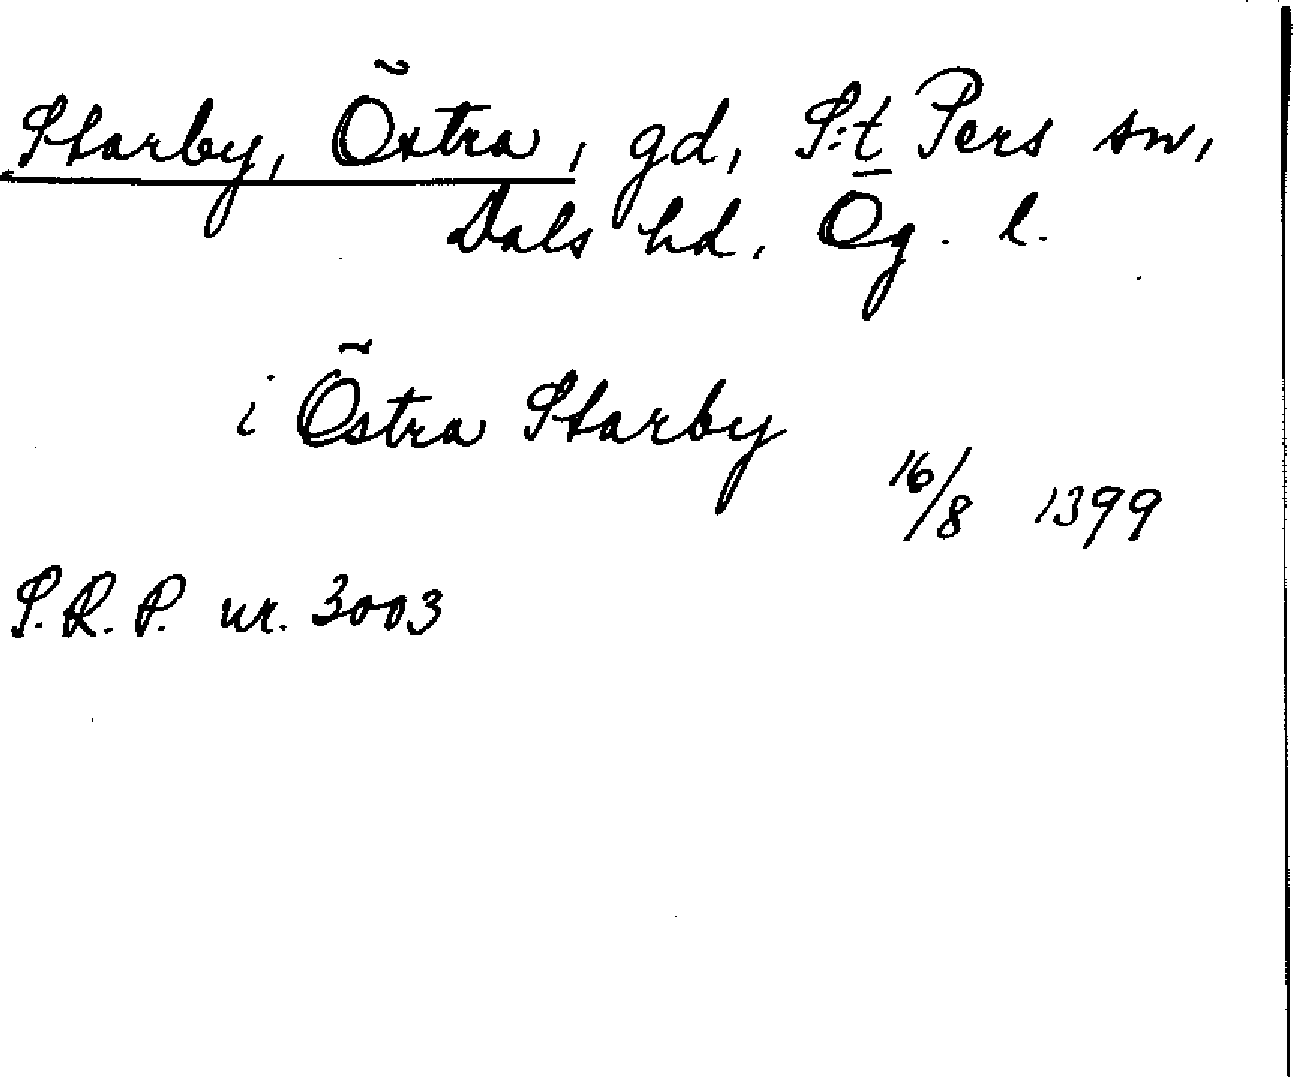 Starby, Östra, gd, S:t Pers sn,
Dals hd. Ög. l.
i Östra Starby
16/8 1399
S.R.P. nr. 3003